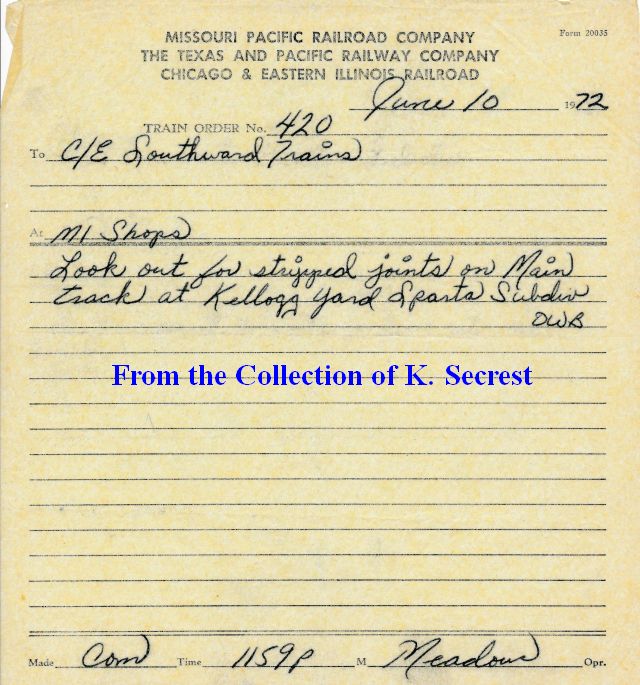 MISSOURI PACIFIC RAILROAD COMPANY
Form 20035
THE TEXAS AND PACIFIC RAILWAY COMPANY
CHICAGO & EASTERN ILLINOIS RAILROAD
June 10 1972
TRAIN ORDER No. 420
To C/E Southward Trains
At M1 Shops
Look out for stripped joints on Main
track at Kellogg Yard Sparta Subdiv
DWB
From the Collection of K. Secrest
Made Com Time 1159P M Meadows Opr.